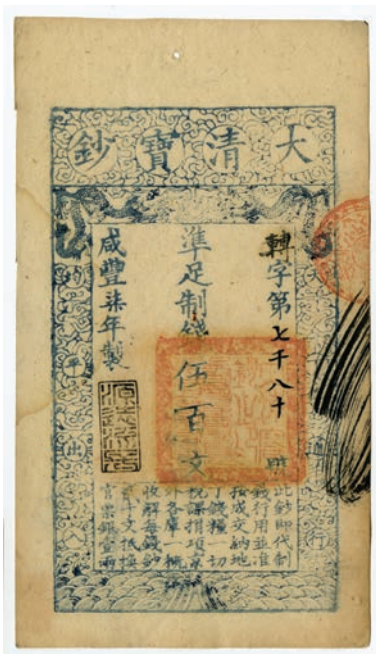 大清寶鈔
通行
轉字第七千八十號
準足制錢伍百文
咸豐柒年製
均平出入
源遠流長
此鈔即代制
錢行用並准
按成交納地
丁錢糧一切
稅課捐項京
外各庫一概
收解每錢鈔
貳千文抵換
官票銀壹兩